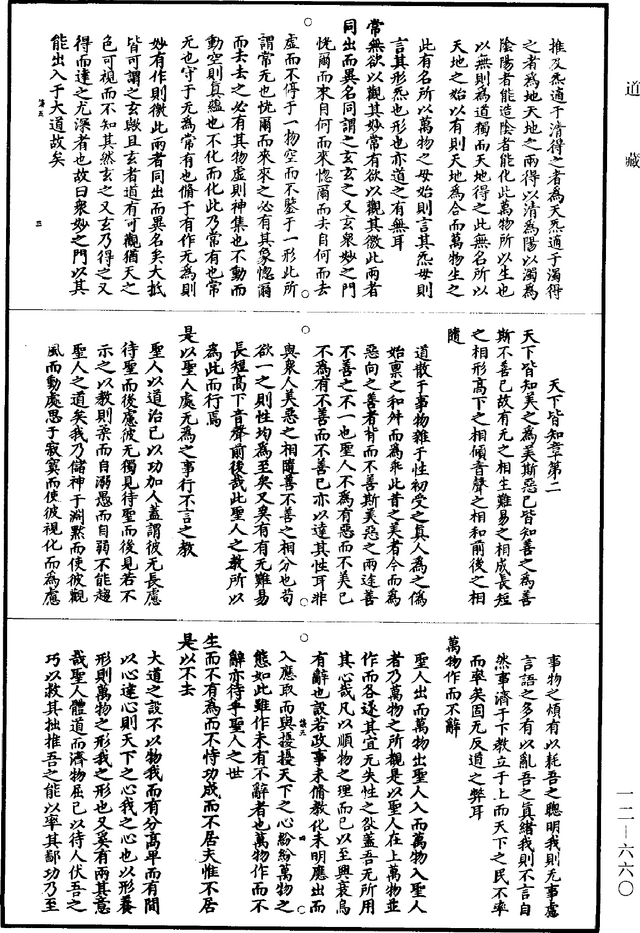 道藏
推及炁適于清得之者為天炁適于濁得
之者為地天地之兩得以清為陽以濁為
陰陽者能造陰者能化此萬物所以生也
以無則為道獨而天地得之此無名所以
天地之始以有則天地為合而萬物生之
此有名所以萬物之母始則言其炁母則
言其形炁也形也亦道之有無耳
常無欲以觀其妙常有欲以觀其徼此兩者
同出而異名同謂之玄玄之又玄衆妙之門
恍爾而來自何而來惚爾而去自何而去
虛而不停于一物空而不鑒于一形此所
謂常无也恍爾而來來之必有其象惚爾
而去去之必有其物虛則神集也不動而
動空則真蘊也不化而化此乃常有也常
无也守于无為常有也脩于有作无為則
妙有作則徼此兩者同出而異名矣大抵
皆可謂之玄歟且玄者道有可觀猶天之
色可視而不知其然玄之又玄乃得之又
得而達之尤深者也故曰衆妙之門以其
能出入于大道故矣
天下皆知章第二
天下皆知美之為美斯惡已皆知善之為善
斯不善已故有无之相生難易之相成長短
之相形高下之相傾音聲之相和前後之相
隨
道散于事物雜于性初受之真人為之偽
始禀之和舛而為乖此昔之美者今而為
惡向之善者有而不善斯美惡之兩途善
不善之不一也聖人不為有惡而不美已
不為有不善而不善已亦以達其性耳非
與衆人美惡之相隨善不善之相分也苟
欲一之則性均為至矣又奚有有无難易
長短高下音聲前後哉此聖人之教所以
為此而行焉
是以聖人處无為之事行不言之教
聖人以道治已以功加人蓋謂彼无長慮
待聖而後慮彼无獨見待聖而後見若不
示之以教則柔而自溺愚而自弱不能趨
聖人之道矣我乃儲神于淵默而使彼觀
風而動處思于寂寞而使彼視化而為慮
事物之煩有以耗吾之聰明我則无事處
言語之多有以亂吾之真緒我則不言自
然事濟于下教立于上而天下之民不率
而率矣固无反道之弊耳
萬物作而不辭
聖人出而萬物出聖人入而萬物入聖人
者乃萬物之所覩是以聖人在上萬物並
作而各遂其宜无失性之歎蓋吾无所用
其心哉凡以順物之理而已以至興衰烏
有辭也設若政事未脩教化未明應出而
入應取而與擾擾天下之心紛紛萬物之
態如此雖作未有不辭者也萬物作而不
辭亦待乎聖人之世
生而不有為而不恃功成而不居夫惟不居
是以不去
大道之設不以物我而有分高卑而有間
以心達心則天下之心我之心也以形養
形則萬物之形我之形也又奚有兩其意
哉聖人體道而濟物屈已以待人伏吾之
巧以救其拙推吾之能以率其鄙功乃至
一二—六六〇